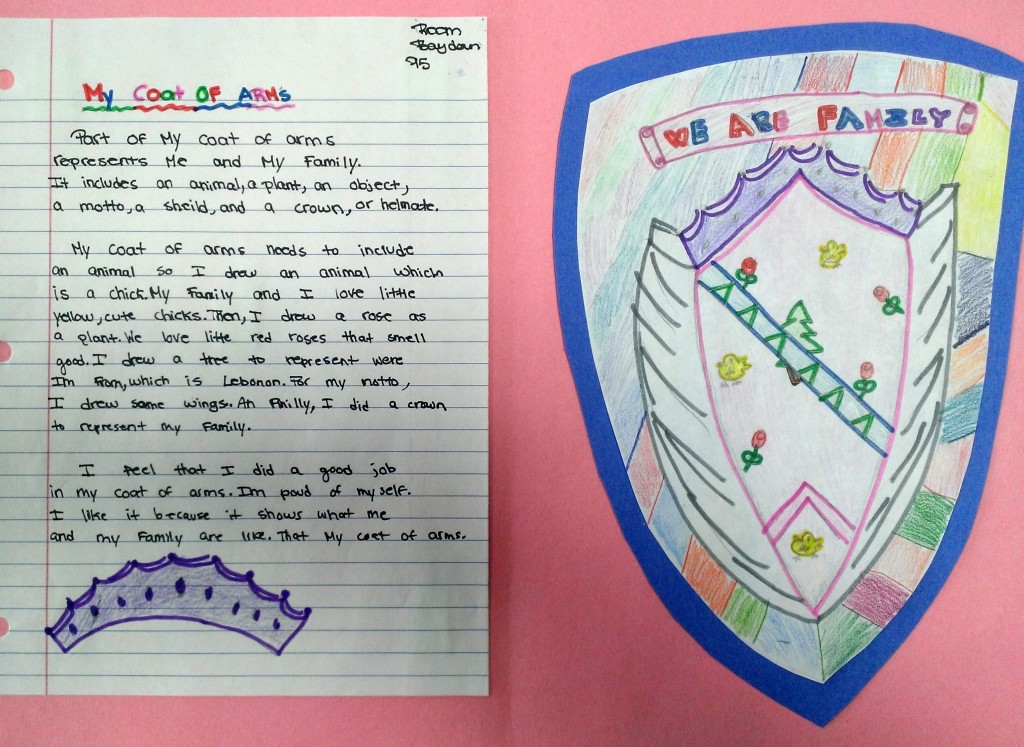 Room
Baydoun
95
My Coat OF ARMS
Part of My coat of arms
represents Me and My Family.
It includes an animal, a plant, an object,
a motto, a sheild, and a crown, or helmate.
My coat of arms needs to include
an animal so I drew an animal which
is a chick. My Family and I love little
yellow, cute chicks. Then, I drew a rose as
a plant. We love little red roses that smell
good. I drew a tree to represent were
Im From, which is Lebonon. For my motto,
I drew some wings. An Finilly, I did a crown
to represent my Family.
I feel that I did a good job
in my coat of arms. Im poud of my self.
I like it because it shows what me
and my Family are like. That My coat of arms.
WE ARE FAMILY